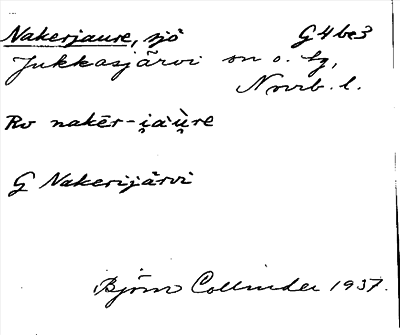 Nakerjaure, sjö G4be3
Jukkasjärvi sn o. tg,
Norrb. l.
Rv nakēr-i̯àù̯re
G Nakerijärvi
Björn Collinder 1937.